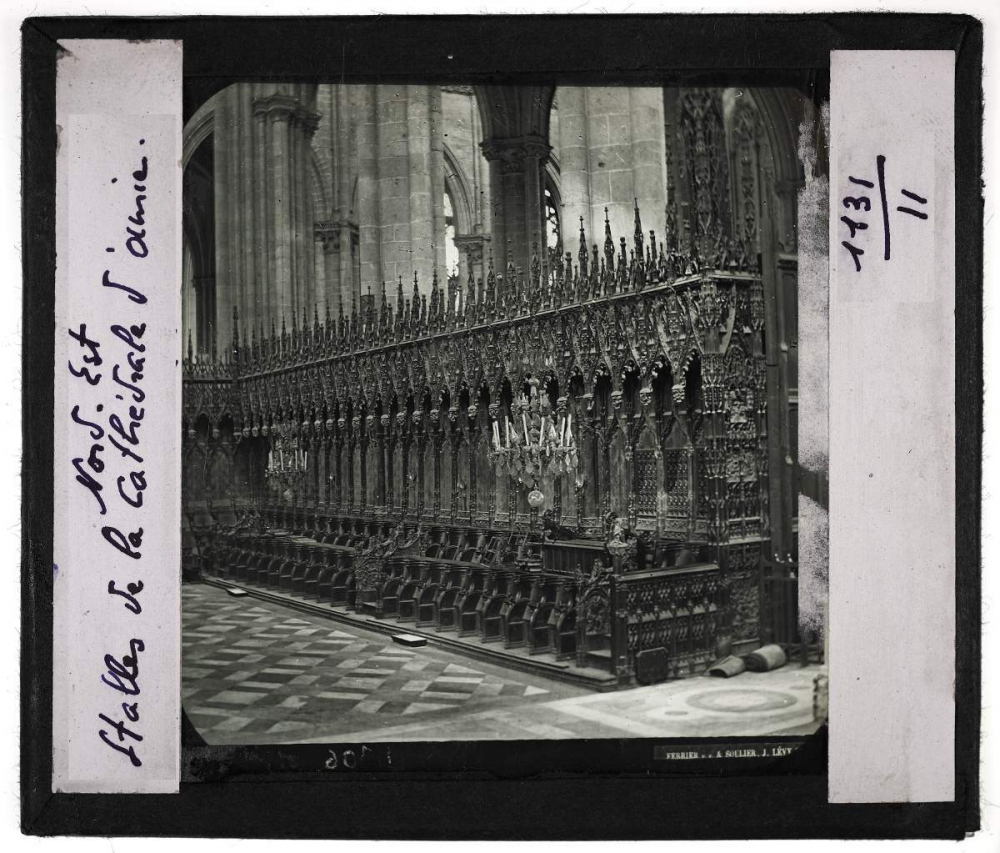 Nord. Est
Stalles de la Cathédrale d'amie.
1131
11
FERRIER p. f. & SOULIER, J. LÉVY
106